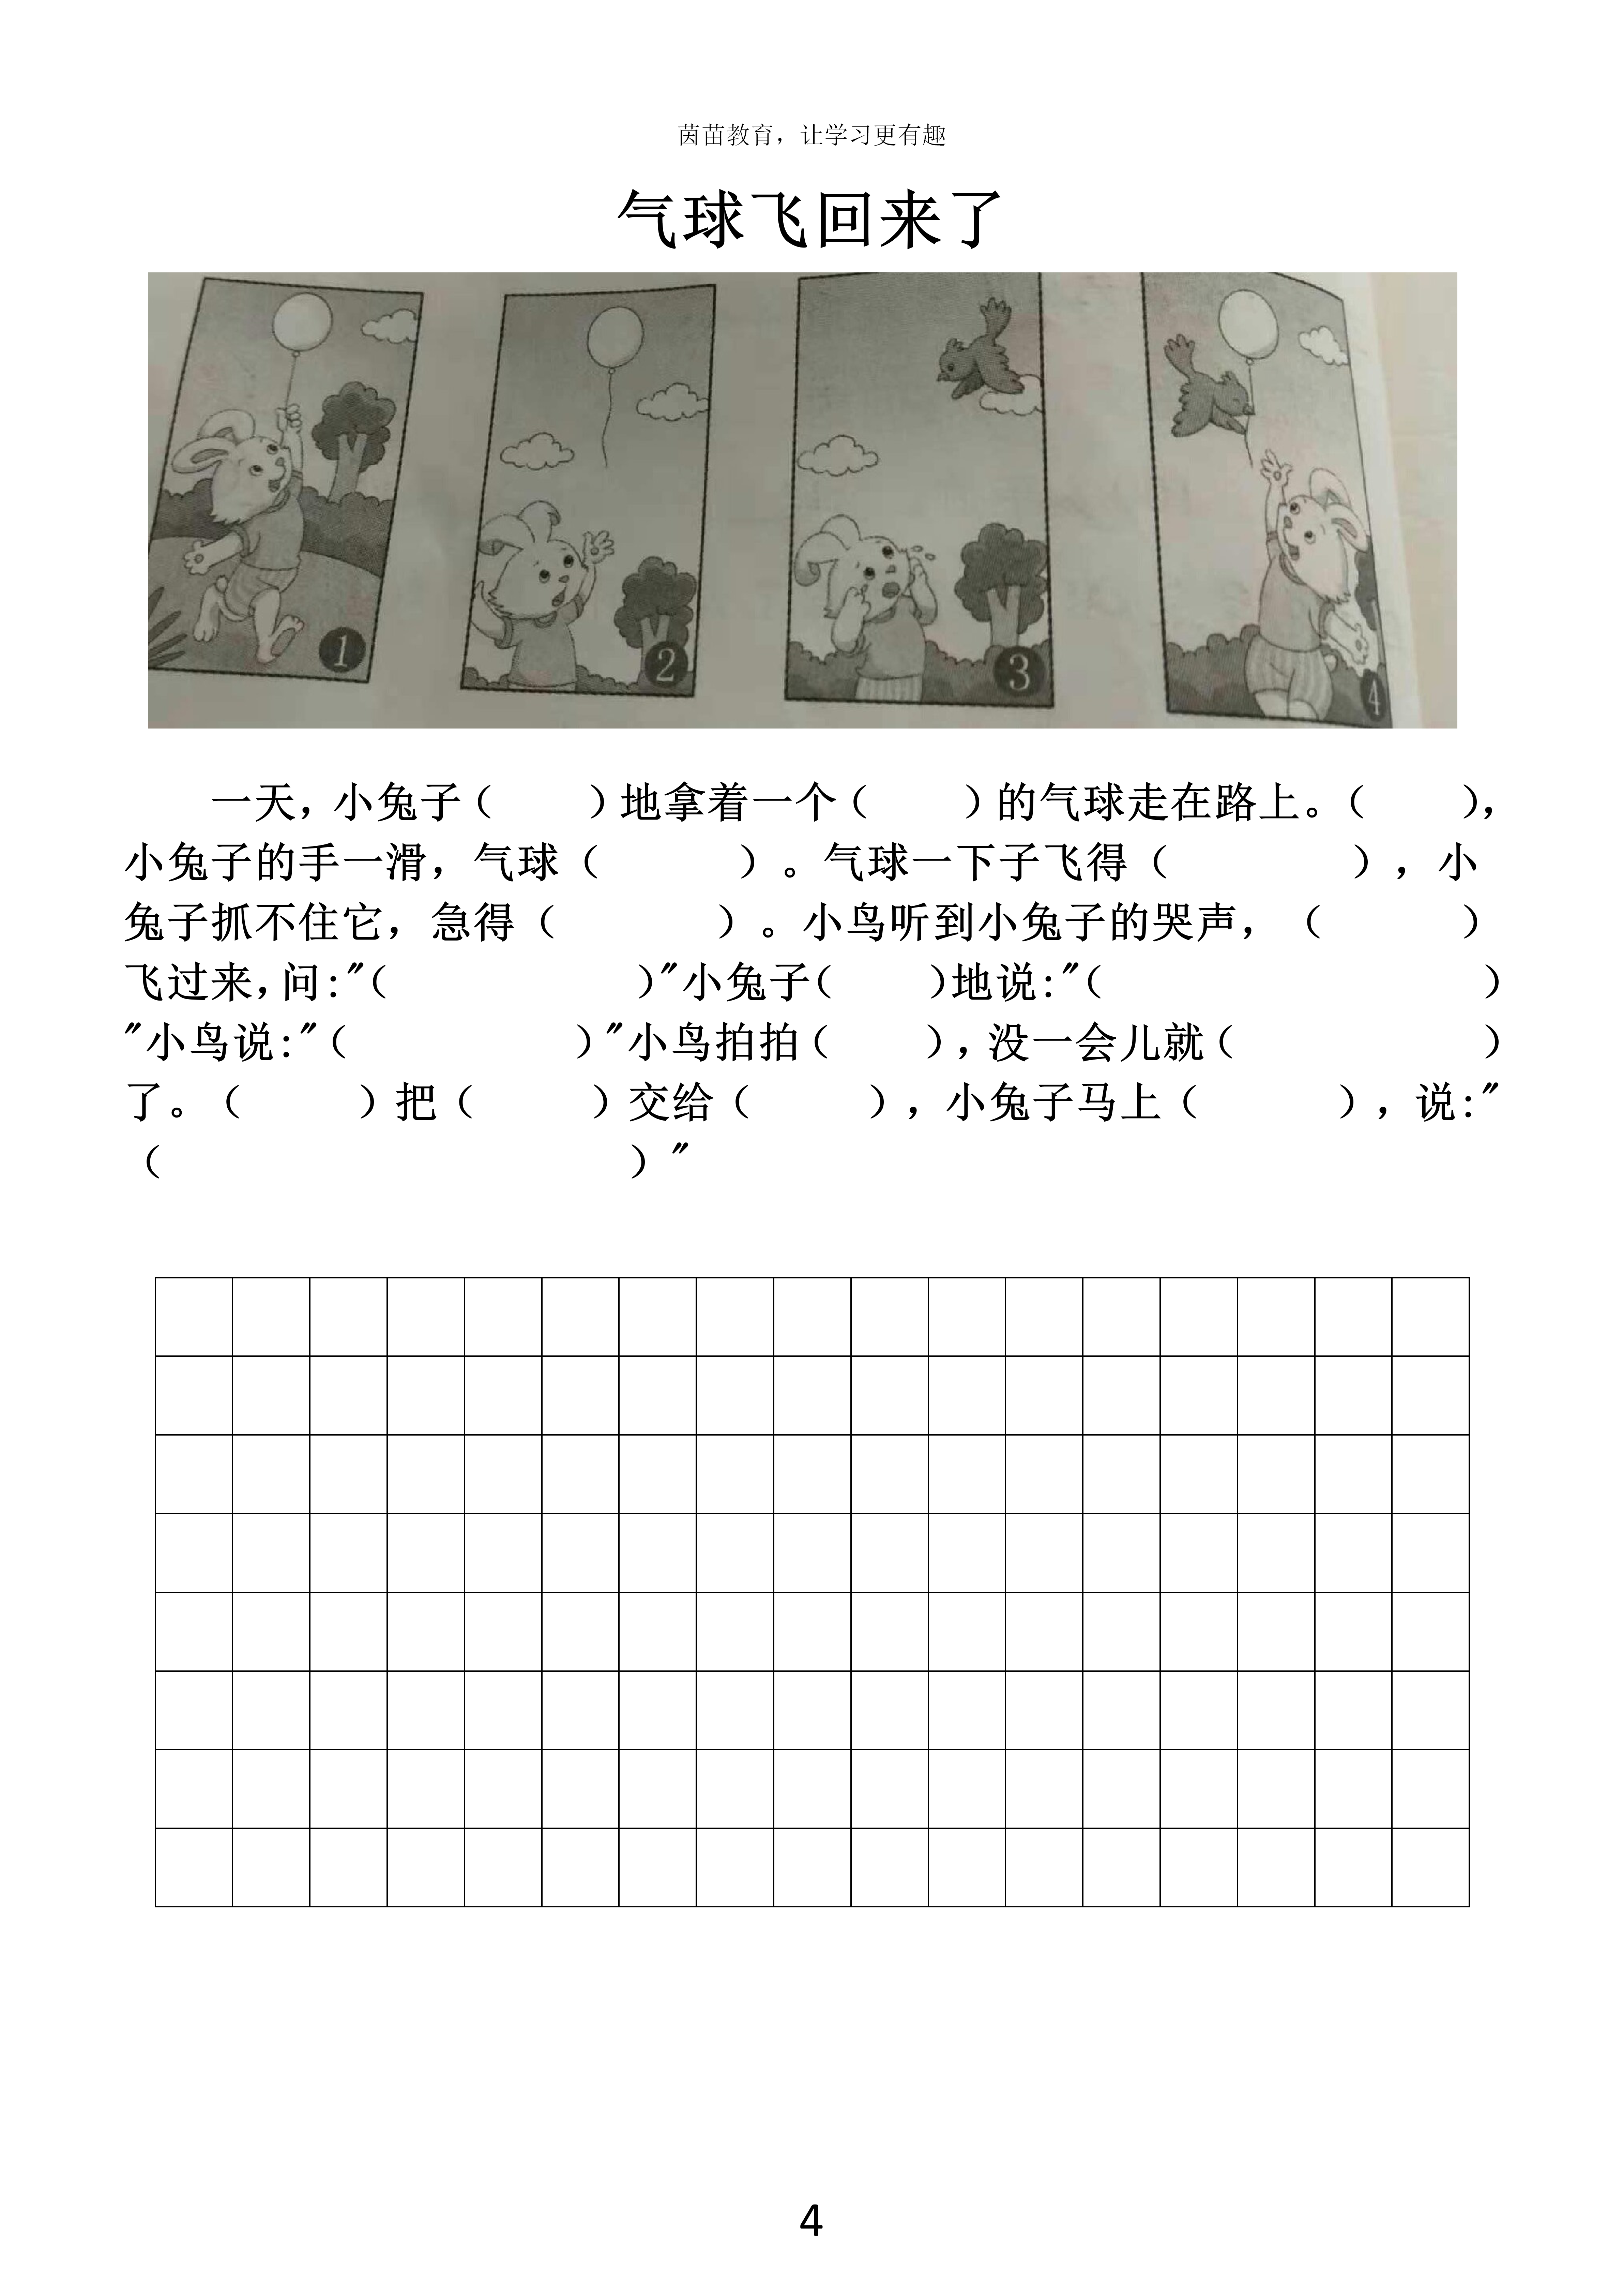 茵苗教育，让学习更有趣
气球飞回来了
1 2 3 4
一天，小兔子（ ）地拿着一个（ ）的气球走在路上。（ ），
小兔子的手一滑，气球（ ）。气球一下子飞得（ ），小
兔子抓不住它，急得（ ）。小鸟听到小兔子的哭声，（ ）
飞过来，问："（ ）"小兔子（ ）地说："（ ）
"小鸟说："（ ）"小鸟拍拍（ ），没一会儿就（ ）
了。（ ）把（ ）交给（ ），小兔子马上（ ），说："
（ ）"
4